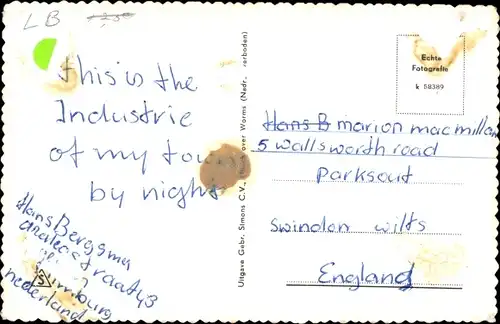 LB
this is the
Industrie
of my town
by night
Hans
43
Limburg
nederland
Uitgave Gebr. Simons C.V., over Worms (Nadr. verboden)
Echte
Fotografie
k 58389
Hans B marion macmillan
5 wallsworth road
Parksout
swindon wilts
England